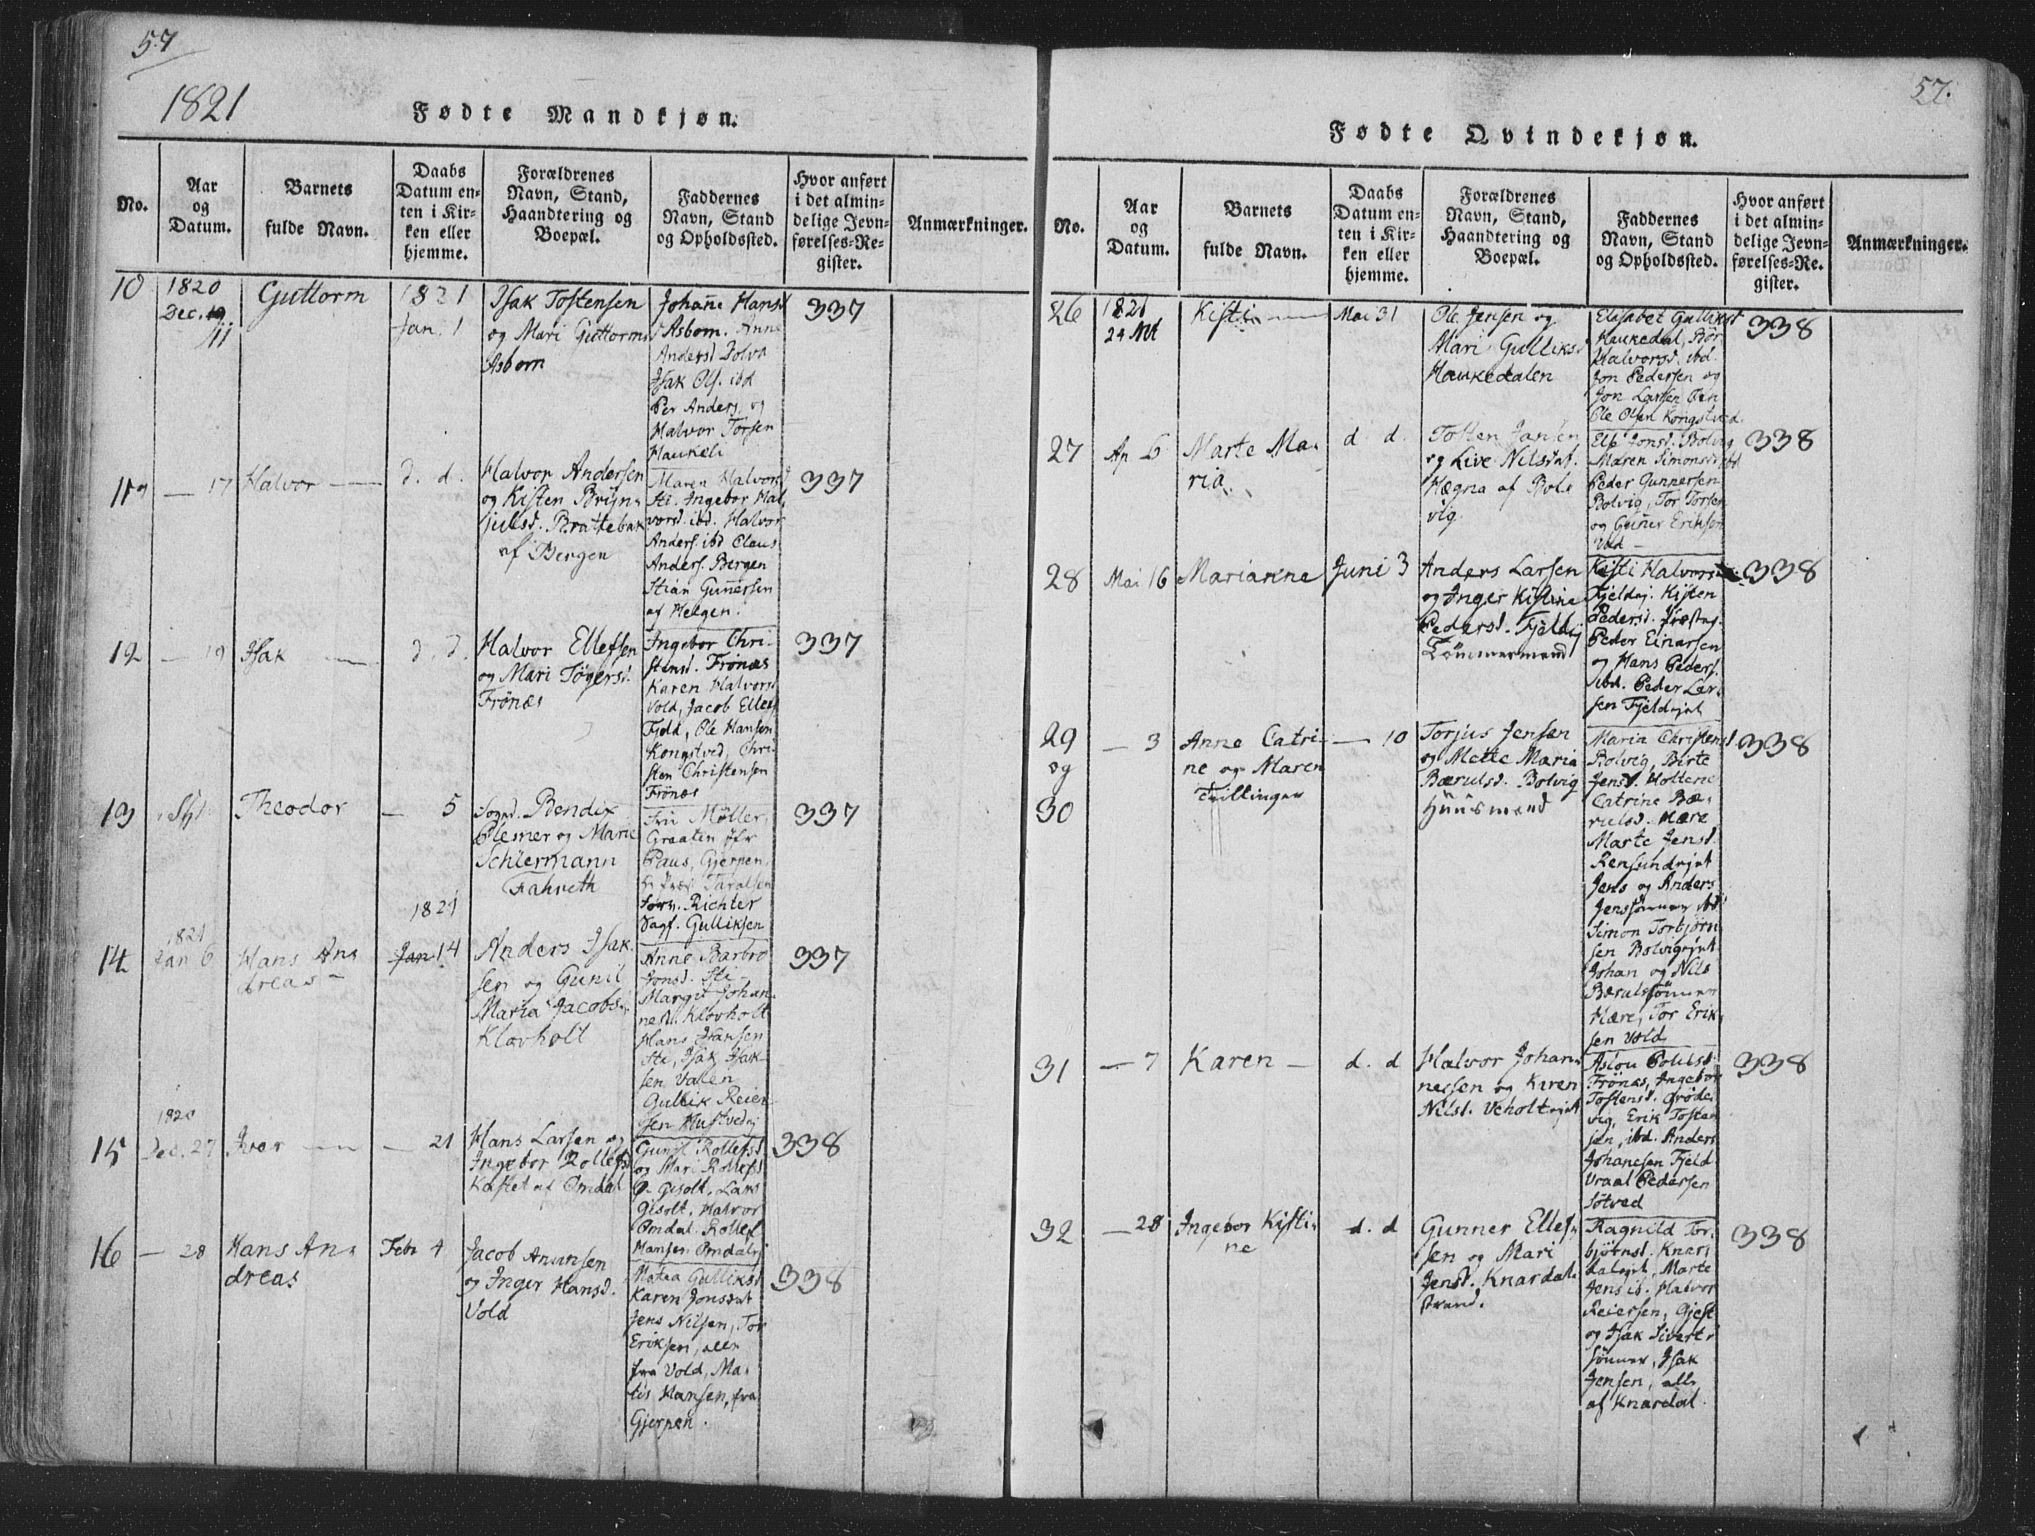 57
1821
Fødte Mandkjøn.
No.
Aar
og
Datum.
Barnets
fulde Navn.
Daabs
Datum en-
ten i Kir-
ken eller
hjemme.
Forældrenes
Navn, Stand,
Haandtering og
Boepæl.
Faddernes
Navn, Stand
og Opholdssted.
Hvor anført
i det almin-
delige Jevn-
førelses-Re-
gister.
Anmærkninger.
10
1820
Dec.
11
Guttorm
1821
Jan. 1
Isak Tostensen
og Mari Guttorms
Asbom
Johanne Hansd
Asbom. Anne
Andersd Bolvi
Isak Ols. ibd
Per Anders. og
Halvor Torsen
Haukeli
337
11
— 17
Halvor —
d. d.
Halvor Andersen
og Kisten Bryn-
julsd. Brattebak
af Bergen
Maren Halvorsd
Sti. Ingebor Hal
vorsd. ibd. Halvor
Anders. ibd Claus
Anders. Bergen
Stian Gunnersen
af Helgen.
337
12
— 19
Isak —
d. d.
Halvor Ellefsen
og Mari Tögersd.
Frönæs
Ingebor Chri-
stensd. Frönæs
Karen Halvorsd
Vold, Jacob Ellefs
Fjeld, Ole Hansen
Kongsted, Chri-
sten Christensen
Frönæs
337
13
Theodor
— 5
Bendix
Plesner og Marie
Schiermann
Fahreth
Fru Møller,
Graaten Jfr
Paus, Gjerpen,
Taralsen
Richter
Gulliksen
337
14
1821
Jan 6
Hans An-
dreas —
1821
Jan 14
Anders Isak-
sen og Gunil
Maria Jacobs-
Klovholt
Anne Barbro
Jonsd. Sti
Margit Johan-
nesd. Klovholt
Hans Hansen
Sti, Isak Isak
sen Valen
Gullik Reier
sen Hustvedej
337
15
1820
Dec. 27
Iver —
— 21
Hans Larsen og
Ingebor Rollefsd
Kastet af Omdal
Gunil Rollefsd
og Mari Rollefsd
Gisolt, Lars
Gisolt, Halvor
Omdal. Rollef
Hansen Omdalej
338
16
— 28
Hans An-
dreas
Febr 4
Jacob
og Inger Hansd.
Vold
Gulliksd
Karen Jonsdat
Jens Nilsen, Tor
Eriksen, alle
fra Vold, Ma-
tis Hansen, fra
Gjerpen.
338
57.
Fødte Qvindekjøn.
No.
Aar
og
Datum.
Barnets
fulde Navn.
Daabs
Datum en-
ten i Kir-
ken eller
hjemme.
Forældrenes
Navn, Stand,
Haandtering og
Boepæl.
Faddernes
Navn, Stand
og Opholdssted.
Hvor anført
i det almin-
delige Jevn-
førelses-Re-
gister.
Anmærkninger.
26
1821
24
Kisti —
Mai 31
Ole Jensen og
Mari Gulliksd
Haukedalen
Elisabet Gulliksd
Haukedal, Bör
Halvorsd. ibd.
Jon Pedersen og
Jon Larsen
Ole Olsen Kongsted
338
27
Ap 6
Marte Ma-
ria
d. d.
Tosten Jansen
og Live Nilsdat.
Hægna af Bol-
vig.
Jonsd. Bolvig
Maren Simonsd ibd
Peder Gunnersen
Bolvig, Tor Torsen
og Gunner Eriksen
Vold —
338
28
Mai 16
Marianne
Juni 3
Anders Larsen
og Inger Kistine
Pedersd. Fjeldej
Tömmermand
Kisti Halvorsd
Fjeldej. Kisten
Pedersd. Præstej
Peder Einarsen
og Hans Peders.
ibd. Peder Lar-
sen Fjeldejet
338
29
og
30
— 3
Anne Catri-
ne og Maren
Tvillinger
— 10
Torjus Jensen
og Mette Maria
Bærulsd. Bolvig
Huusmand
Maria Christensd
Bolvig, Birte
Jensd. Holtene
Catrine Bæ-
rulsd. Hære
Marte Jensd.
Rensundejet
Jens og Anders
Jenssönner ibd
Simon Torbjörn
sen Bolvigejet
Johan og Nils
Bærulssönner
Hære, Tor Erik-
sen Vold
338
31
— 7
Karen —
d. d
Halvor Johan-
nessen og Karen
Nilsd. Veholtejet
Aslou Poulsd
Frönæs, Ingebor
Tostensd. Gröde-
vig, Erik Tosten
sen, ibd. Anders
Johanesen Fjeld
Vraal Pedersen
Sötved
338
32
— 28
Ingebor Kisti-
ne
d. d
Gunner Ellef-
sen og Mari
Jensd. Knardal-
strand.
Ragnild Tor-
bjørnsd. Knar-
dalejet, Marte
Jens ib. Halvor
Reiersen, Gjest
og Isak Siverts-
sönner, Isak
Jensen, alle
af Knardal.
338